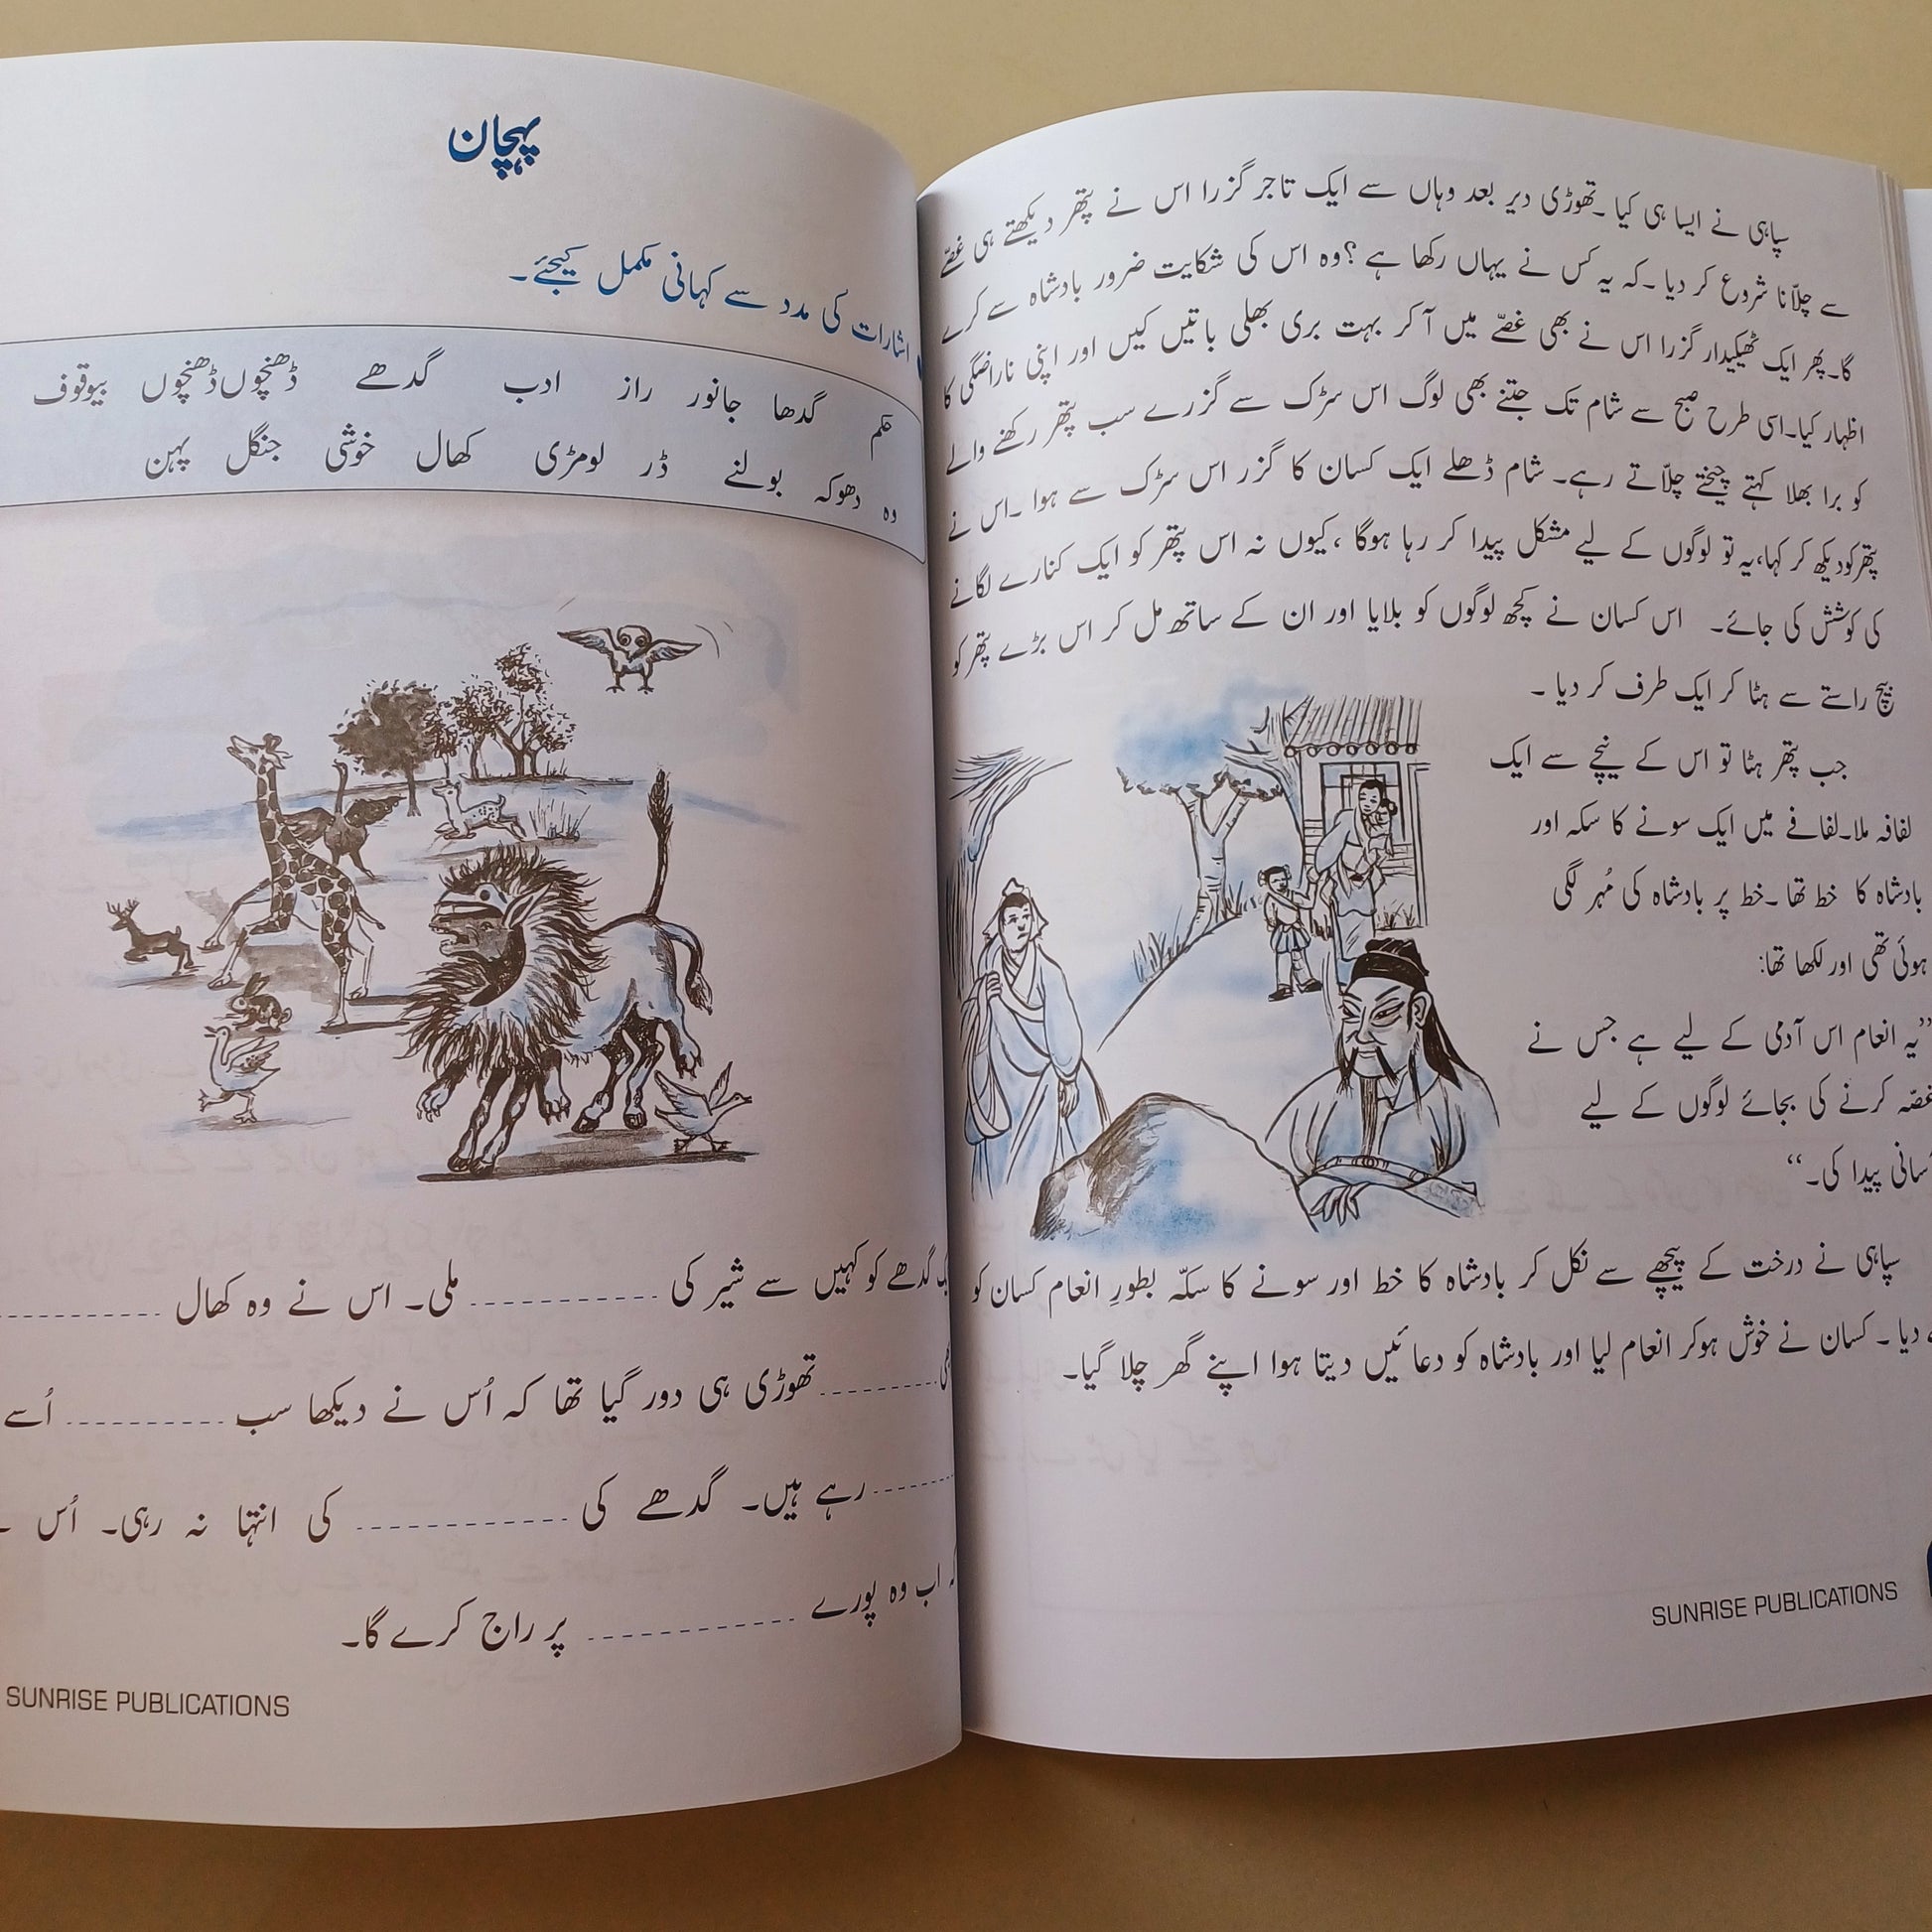 سپاہی نے ایسا ہی کیا ۔تھوڑی دیر بعد وہاں سے ایک تاجر گزرا اس نے پتھر دیکھتے ہی غصّے
سے چلاّنا شروع کر دیا ۔کہ یہ کس نے یہاں رکھا ہے ؟وہ اس کی شکایت ضرور بادشاہ سے کرے
گا۔پھر ایک ٹھیکیدار گزرا اس نے بھی غصّے میں آ کر بہت بری بھلی باتیں کیں اور اپنی ناراضگی کا
اظہار کیا۔اسی طرح صبح سے شام تک جتنے بھی لوگ اس سڑک سے گزرے سب پتھر رکھنے والے
کو برا بھلا کہتے چیختے چلاّتے رہے۔ شام ڈھلے ایک کسان کا گزر اس سڑک سے ہوا ۔اس نے
پتھرکودیکھ کر کہا،یہ تو لوگوں کے لیے مشکل پیدا کر رہا ہوگا ،کیوں نہ اس پتھر کو ایک کنارے لگانے
کی کوشش کی جائے۔ اس کسان نے کچھ لوگوں کو بلایا اور ان کے ساتھ مل کر اس بڑے پتھر کو
بیچ راستے سے ہٹا کر ایک طرف کر دیا ۔
جب پتھر ہٹا تو اس کے نیچے سے ایک
لفافہ ملا۔لفافے میں ایک سونے کا سکہ اور
بادشاہ کا خط تھا ۔خط پر بادشاہ کی مُہر لگی
ہوئی تھی اور لکھا تھا:
’’یہ انعام اس آدمی کے لیے ہے جس نے
غصّہ کرنے کی بجائے لوگوں کے لیے
پیدا کی۔‘‘
سپاہی نے درخت کے پیچھے سے نکل کر بادشاہ کا خط اور سونے کا سکّہ بطورِ انعام کسان کو
دیا ۔ کسان نے خوش ہوکر انعام لیا اور بادشاہ کو دعائیں دیتا ہوا اپنے گھر چلا گیا۔
SUNRISE PUBLICATIONS
پہچان
اشارات کی مدد سے کہانی مکمل کیجئے۔
حکم گدھا جانور راز ادب گدھے ڈھنچوں ڈھنچوں بیوقوف
وہ دھوکہ بولنے ڈر لومڑی کھال خوشی جنگل پہن
گدھے کو کہیں سے شیر کی ------------ ملی۔ اس نے وہ کھال ------------
------------ تھوڑی ہی دور گیا تھا کہ اُس نے دیکھا سب ------------ اُسے
------------ رہے ہیں۔ گدھے کی ------------ کی انتہا نہ رہی۔ اُس
اب وہ پورے ------------ پر راج کرے گا۔
SUNRISE PUBLICATIONS